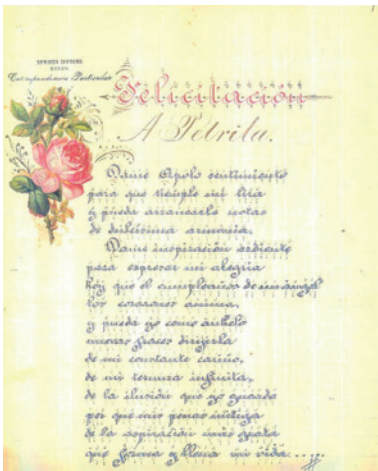 Correspondencia Particular
Felicitación
A Petrita.
Dame Apolo sentimiento
para que temple mi lira
y pueda arrancarle notas
de dulcísima armonía.
Dame inspiración ardiente
para expresar mi alegría
hoy que el cumpleaños de un ángel
los corazones anima,
y pueda yo como anhelo
nuevas frases dirijirla
de mi constante cariño,
de mi ternura infinita,
de la ilusión que yo guardo
por que mis penas mitiga
de la aspiración más grata
que forma y llena mi vida.....